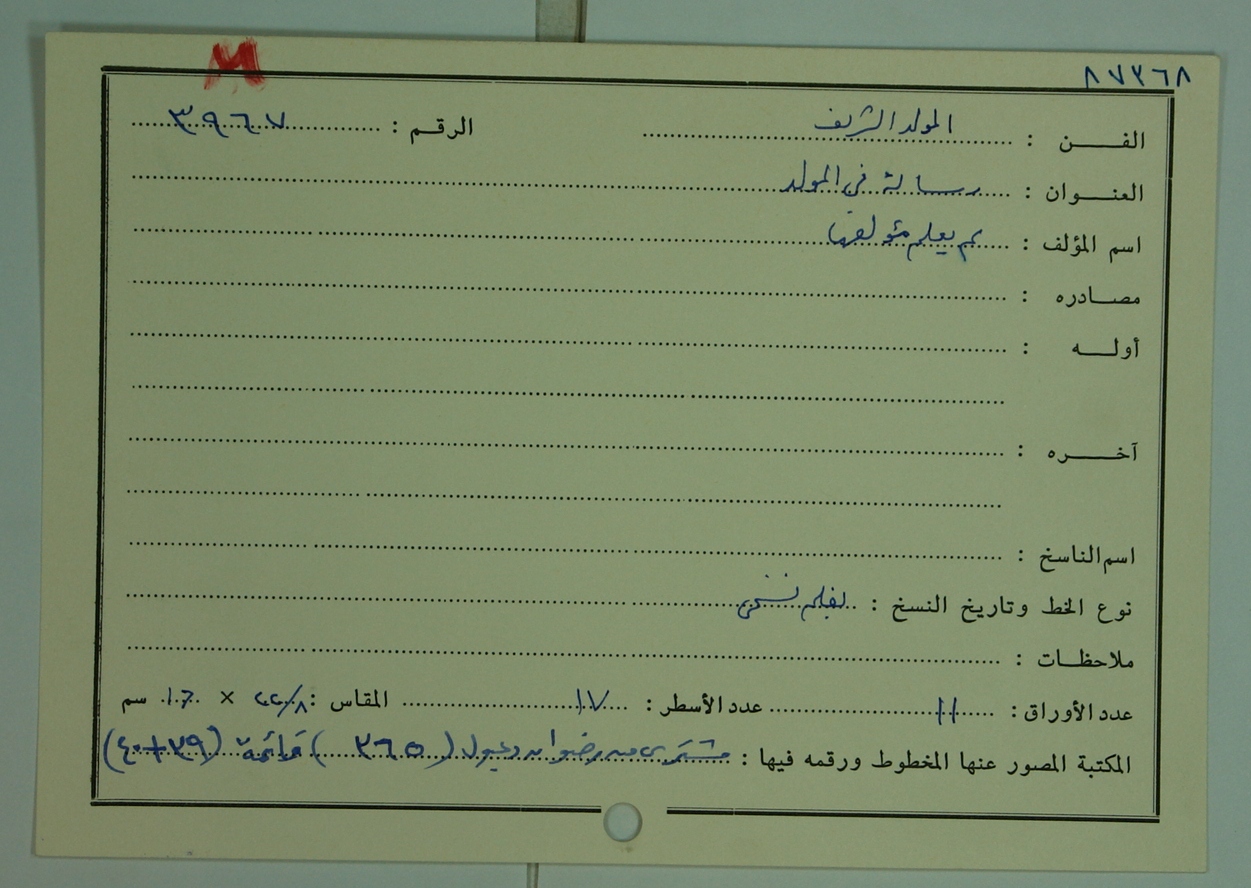 M
٨٧٣٦٨
الفـــن : المولد الشريف الرقم : ٣٩٦٧
العنـوان : رسالة في المولد
اسم المؤلف : لم يعلم مؤلفها
مصـادره :
أولـــه :
آخـــره :
اسم الناسخ :
نوع الخط وتاريخ النسخ : بقلم نسخي
ملاحظـات :
عدد الأوراق : ١١ عدد الأسطر : ١٧ المقاس : ٢٢/٨ × ١٦ سم
المكتبة المصور عنها المخطوط ورقمه فيها : مشترى من رضوان دعبول (٣٦٥) قائمة (٣٩+٤٠)